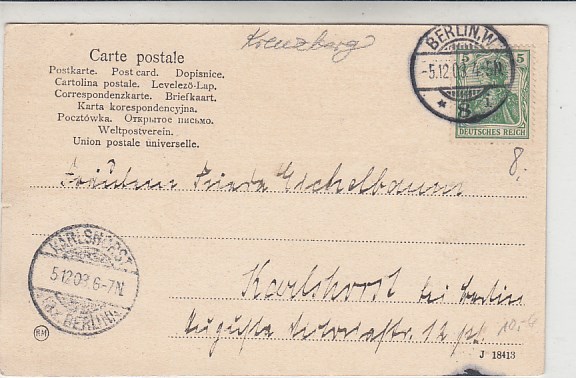 Kreuzberg
Carte postale
Postkarte. Post card. Dopisnice.
Cartolina postale. Levelező-Lap.
Correspondenzkarte. Briefkaart.
Karta korespondencyjna.
Pocztówka. Открытое письмо.
Weltpostverein.
Union postale universelle.
BERLIN.W.
5.12.03.4-5N.
* 8
5 5
DEUTSCHES REICH
8,-
Fräulein Frieda Eichelbaum
KARLSHORST
5.12.03.6-7N.
(Bz. BERLIN).
Karlshorst bei Berlin
Augusta Victoriastr. 12
10,-
HM
J 18413